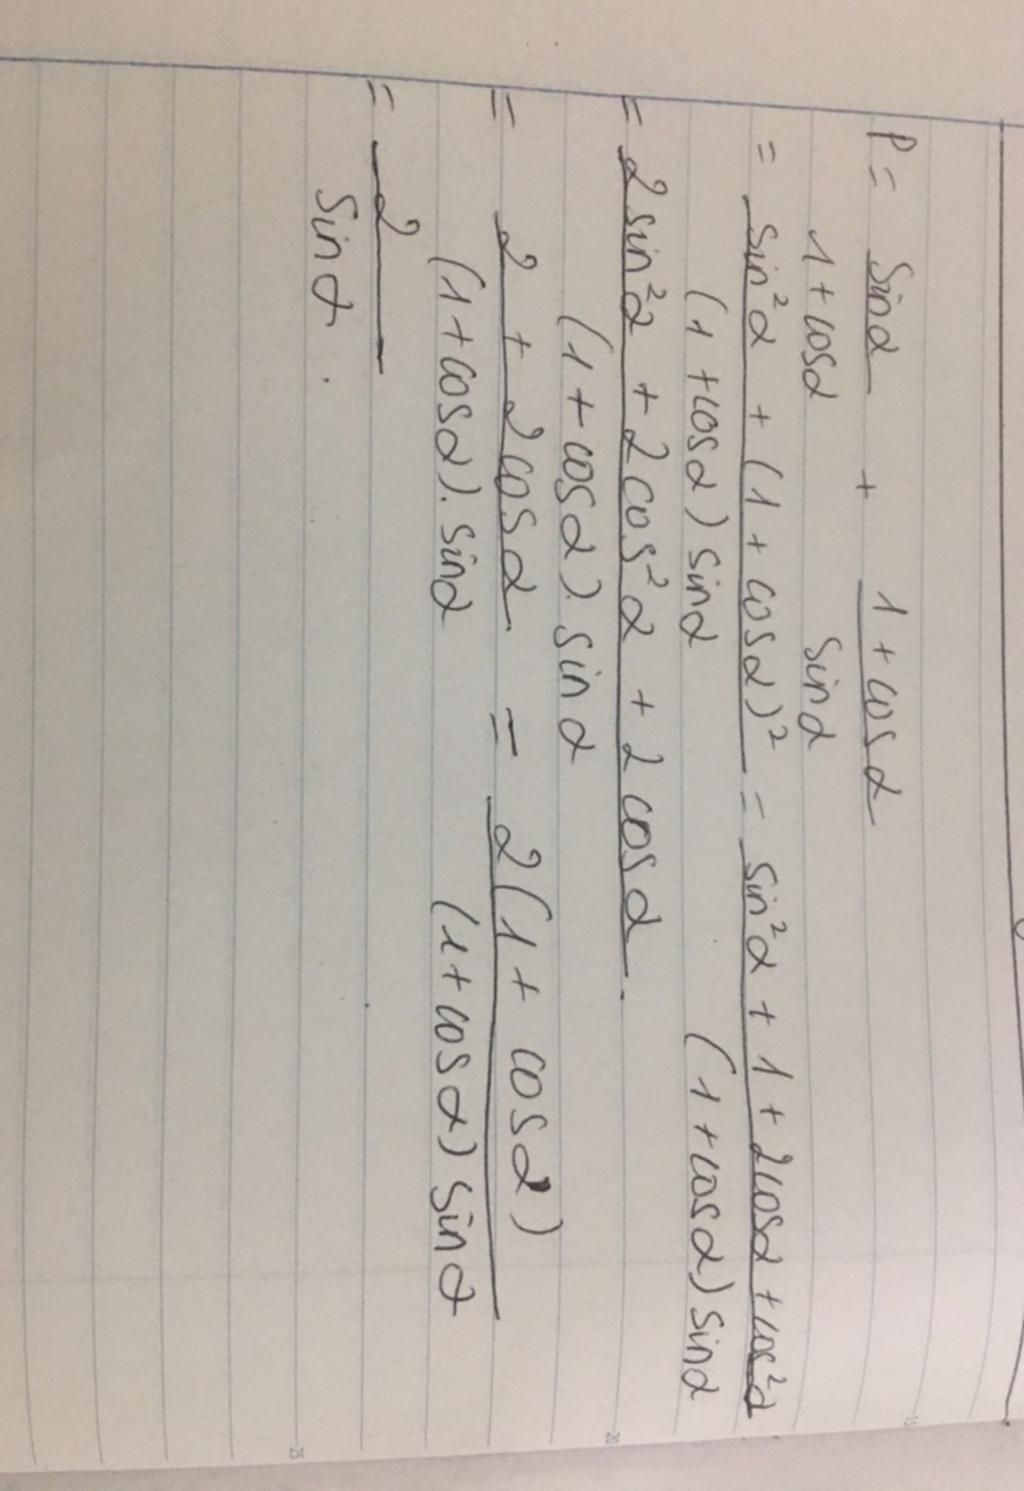 P = sinα / 1 + cosα + 1 + cosα / sinα
= sin²α + (1 + cosα)² / (1 + cosα) sinα = sin²α + 1 + 2cosα + cos²α / (1 + cosα) sinα
= 2sin²α + 2cos²α + 2cosα / (1 + cosα). sinα
= 2 + 2cosα / (1 + cosα). sinα = 2(1 + cosα) / (1 + cosα) sinα
= 2 / sinα.
15
20
25